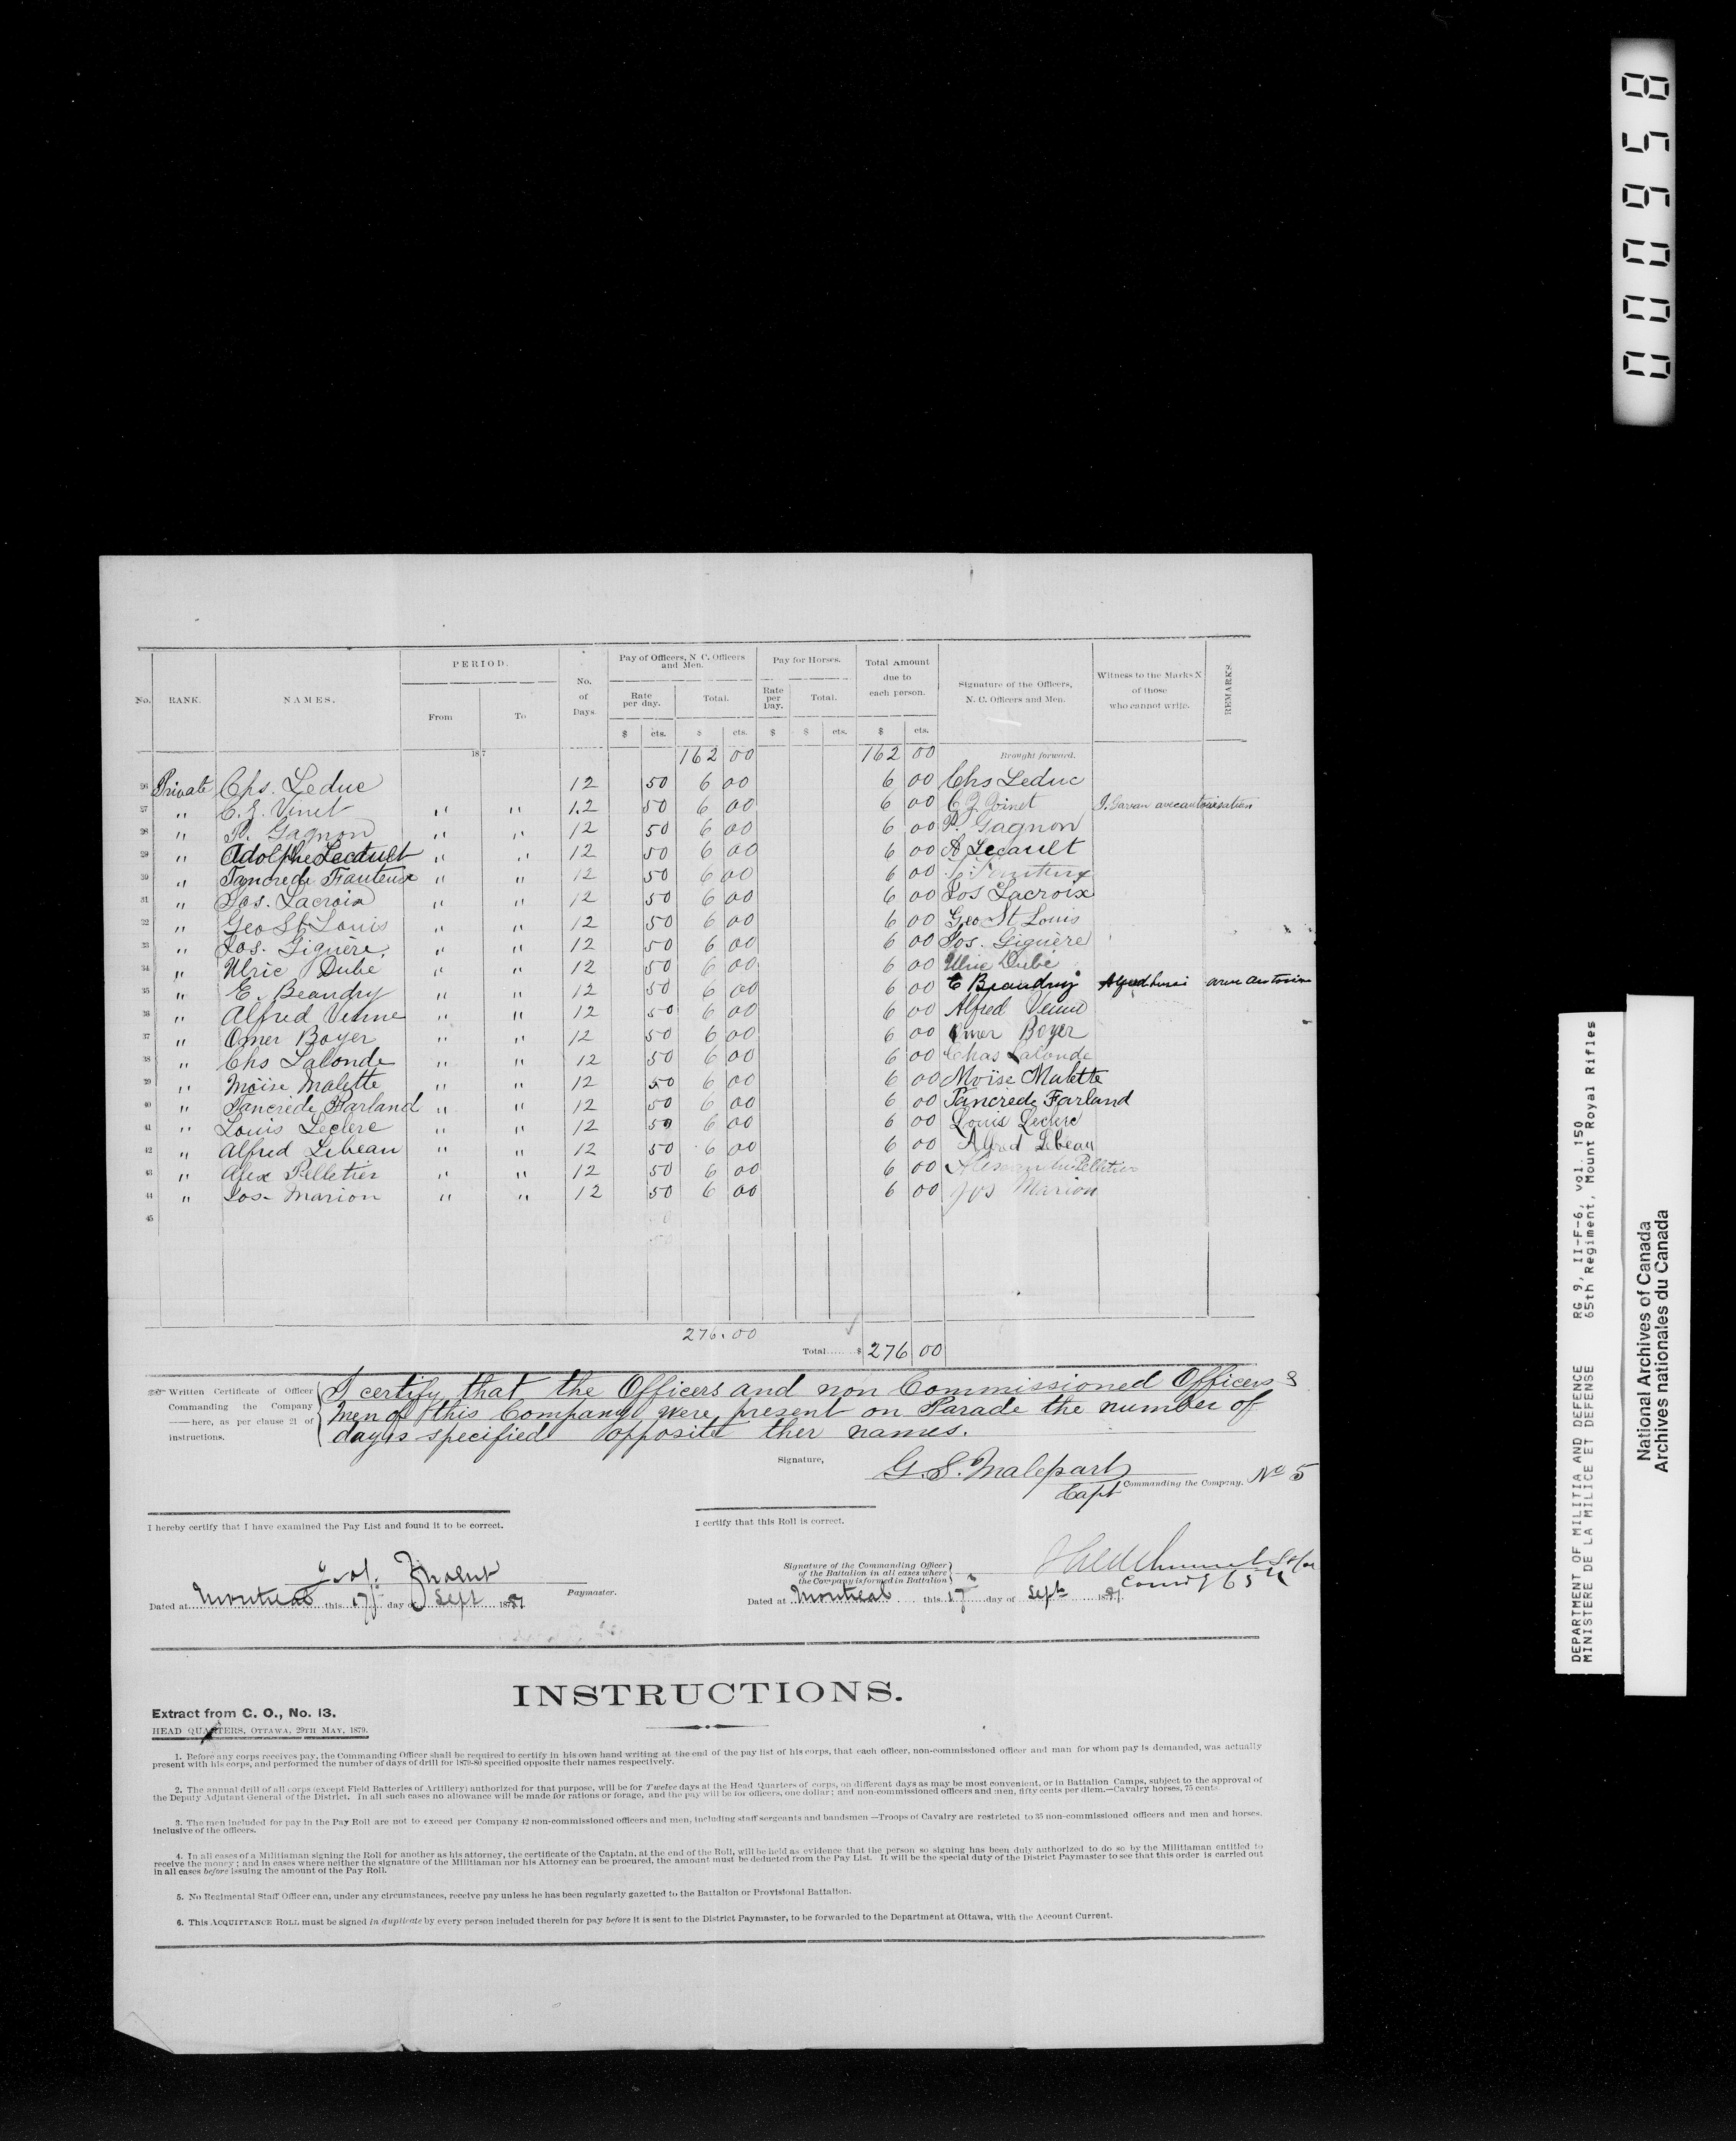 0009 58
PERIOD.
Pay of Officers, N. C. Officers and Men.
Pay for Horses.
Total Amount due to each person.
No. RANK. NAMES. From To No. of Days. Rate per day. Total. Rate per Day. Total. Signature of the Officers, N. C. Officers and Men. Witness to the Marks X of those who cannot write. REMARKS.
$ cts. $ cts. $ $ cts. $ cts.
187 162 00 162 00 Brought forward.
26 Private Chs. Leduc 12 50 6 00 6 00 Chs Leduc
27 " C. Z. Vinet " " 12 50 6 00 6 00 C Z Vinet
28 " P. Gagnon " " 12 50 6 00 6 00 P. Gagnon
29 " Adolphe Lecault " " 12 50 6 00 6 00 A Lecault
30 " Tancrede Fauteux " " 12 50 6 00 6 00
31 " Jos. Lacroix " " 12 50 6 00 6 00 Jos Lacroix
32 " Geo St. Louis " " 12 50 6 00 6 00 Geo St Louis
33 " Jos. Giguère " " 12 50 6 00 6 00 Jos. Giguère
34 " Ulric Dubé " " 12 50 6 00 6 00 Ulric Dubé
35 " E. Beaudry " " 12 50 6 00 6 00 E Beaudry
36 " Alfred Venne " " 12 50 6 00 6 00 Alfred Venne
37 " Omer Boyer " " 12 50 6 00 6 00 Omer Boyer
38 " Chs Lalonde " " 12 50 6 00 6 00 Chas Lalonde
39 " Moïse Malette " " 12 50 6 00 6 00 Moïse Malette
40 " Tancrède Farland " " 12 50 6 00 6 00 Tancrède Farland
41 " Louis Leclerc " " 12 50 6 00 6 00 Louis Leclerc
42 " Alfred Lebeau " " 12 50 6 00 6 00 Alfred Lebeau
43 " Alex Pelletier " " 12 50 6 00 6 00 Alexandre Pelletier
44 " Jos- Marion " " 12 50 6 00 6 00 Jos Marion
45
276.00
Total.......$ 276 00
Written Certificate of Officer Commanding the Company ——here, as per clause 21 of instructions.
I certify that the Officers and non Commissioned Officers &
men of this Company were present on Parade the number of
days specified opposite ther names.
Signature, G. S. Malepart
Capt Commanding the Company. No 5
I hereby certify that I have examined the Pay List and found it to be correct.
I certify that this Roll is correct.
Paymaster.
Signature of the Commanding Officer of the Battalion in all cases where the Company is formed in Battalion
Comdg 65th
Dated at Montreal this 17 day of Sept 1881
Dated at Montreal this 17 day of Sept 1881.
INSTRUCTIONS.
Extract from G. O., No. 13.
HEAD QUARTERS, OTTAWA, 29TH MAY, 1879.
1. Before any corps receives pay, the Commanding Officer shall be required to certify in his own hand writing at the end of the pay list of his corps, that each officer, non-commissioned officer and man for whom pay is demanded, was actually
present with his corps, and performed the number of days of drill for 1879-80 specified opposite their names respectively.
2. The annual drill of all corps (except Field Batteries of Artillery) authorized for that purpose, will be for Twelve days at the Head Quarters of corps, on different days as may be most convenient, or in Battalion Camps, subject to the approval of
the Deputy Adjutant General of the District. In all such cases no allowance will be made for rations or forage, and the pay will be for officers, one dollar; and non-commissioned officers and men, fifty cents per diem.—Cavalry horses, 75 cents
3. The men included for pay in the Pay Roll are not to exceed per Company 42 non-commissioned officers and men, including staff sergeants and bandsmen —Troops of Cavalry are restricted to 35 non-commissioned officers and men and horses,
inclusive of the officers.
4. In all cases of a Militiaman signing the Roll for another as his attorney, the certificate of the Captain, at the end of the Roll, will be held as evidence that the person so signing has been duly authorized to do so by the Militiaman entitled to
receive the money; and in cases where neither the signature of the Militiaman nor his Attorney can be procured, the amount must be deducted from the Pay List. It will be the special duty of the District Paymaster to see that this order is carried out
in all cases before issuing the amount of the Pay Roll.
5. No Regimental Staff Officer can, under any circumstances, receive pay unless he has been regularly gazetted to the Battalion or Provisional Battalion.
6. This ACQUITTANCE ROLL must be signed in duplicate by every person included therein for pay before it is sent to the District Paymaster, to be forwarded to the Department at Ottawa, with the Account Current.
DEPARTMENT OF MILITIA AND DEFENCE RG 9, II-F-6, vol. 150
MINISTERE DE LA MILICE ET DEFENSE 65th Regiment, Mount Royal Rifles
National Archives of Canada
Archives nationales du Canada